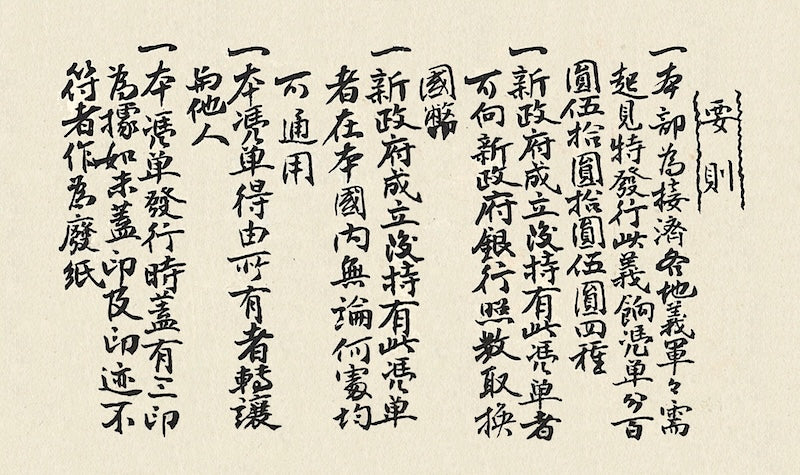 要則
一本部為接濟各地義軍々需
起見特發行此義餉憑單分百
圓伍拾圓拾圓伍圓四種
一新政府成立後持有此憑单者
可向新政府銀行照数取換
國幣
一新政府成立後持有此憑单
者在本國内無論何處均
可通用
一本憑單得由所有者轉讓
与他人
一本憑单發行時蓋有三印
為據如未蓋印及印迹不
符者作為廢紙